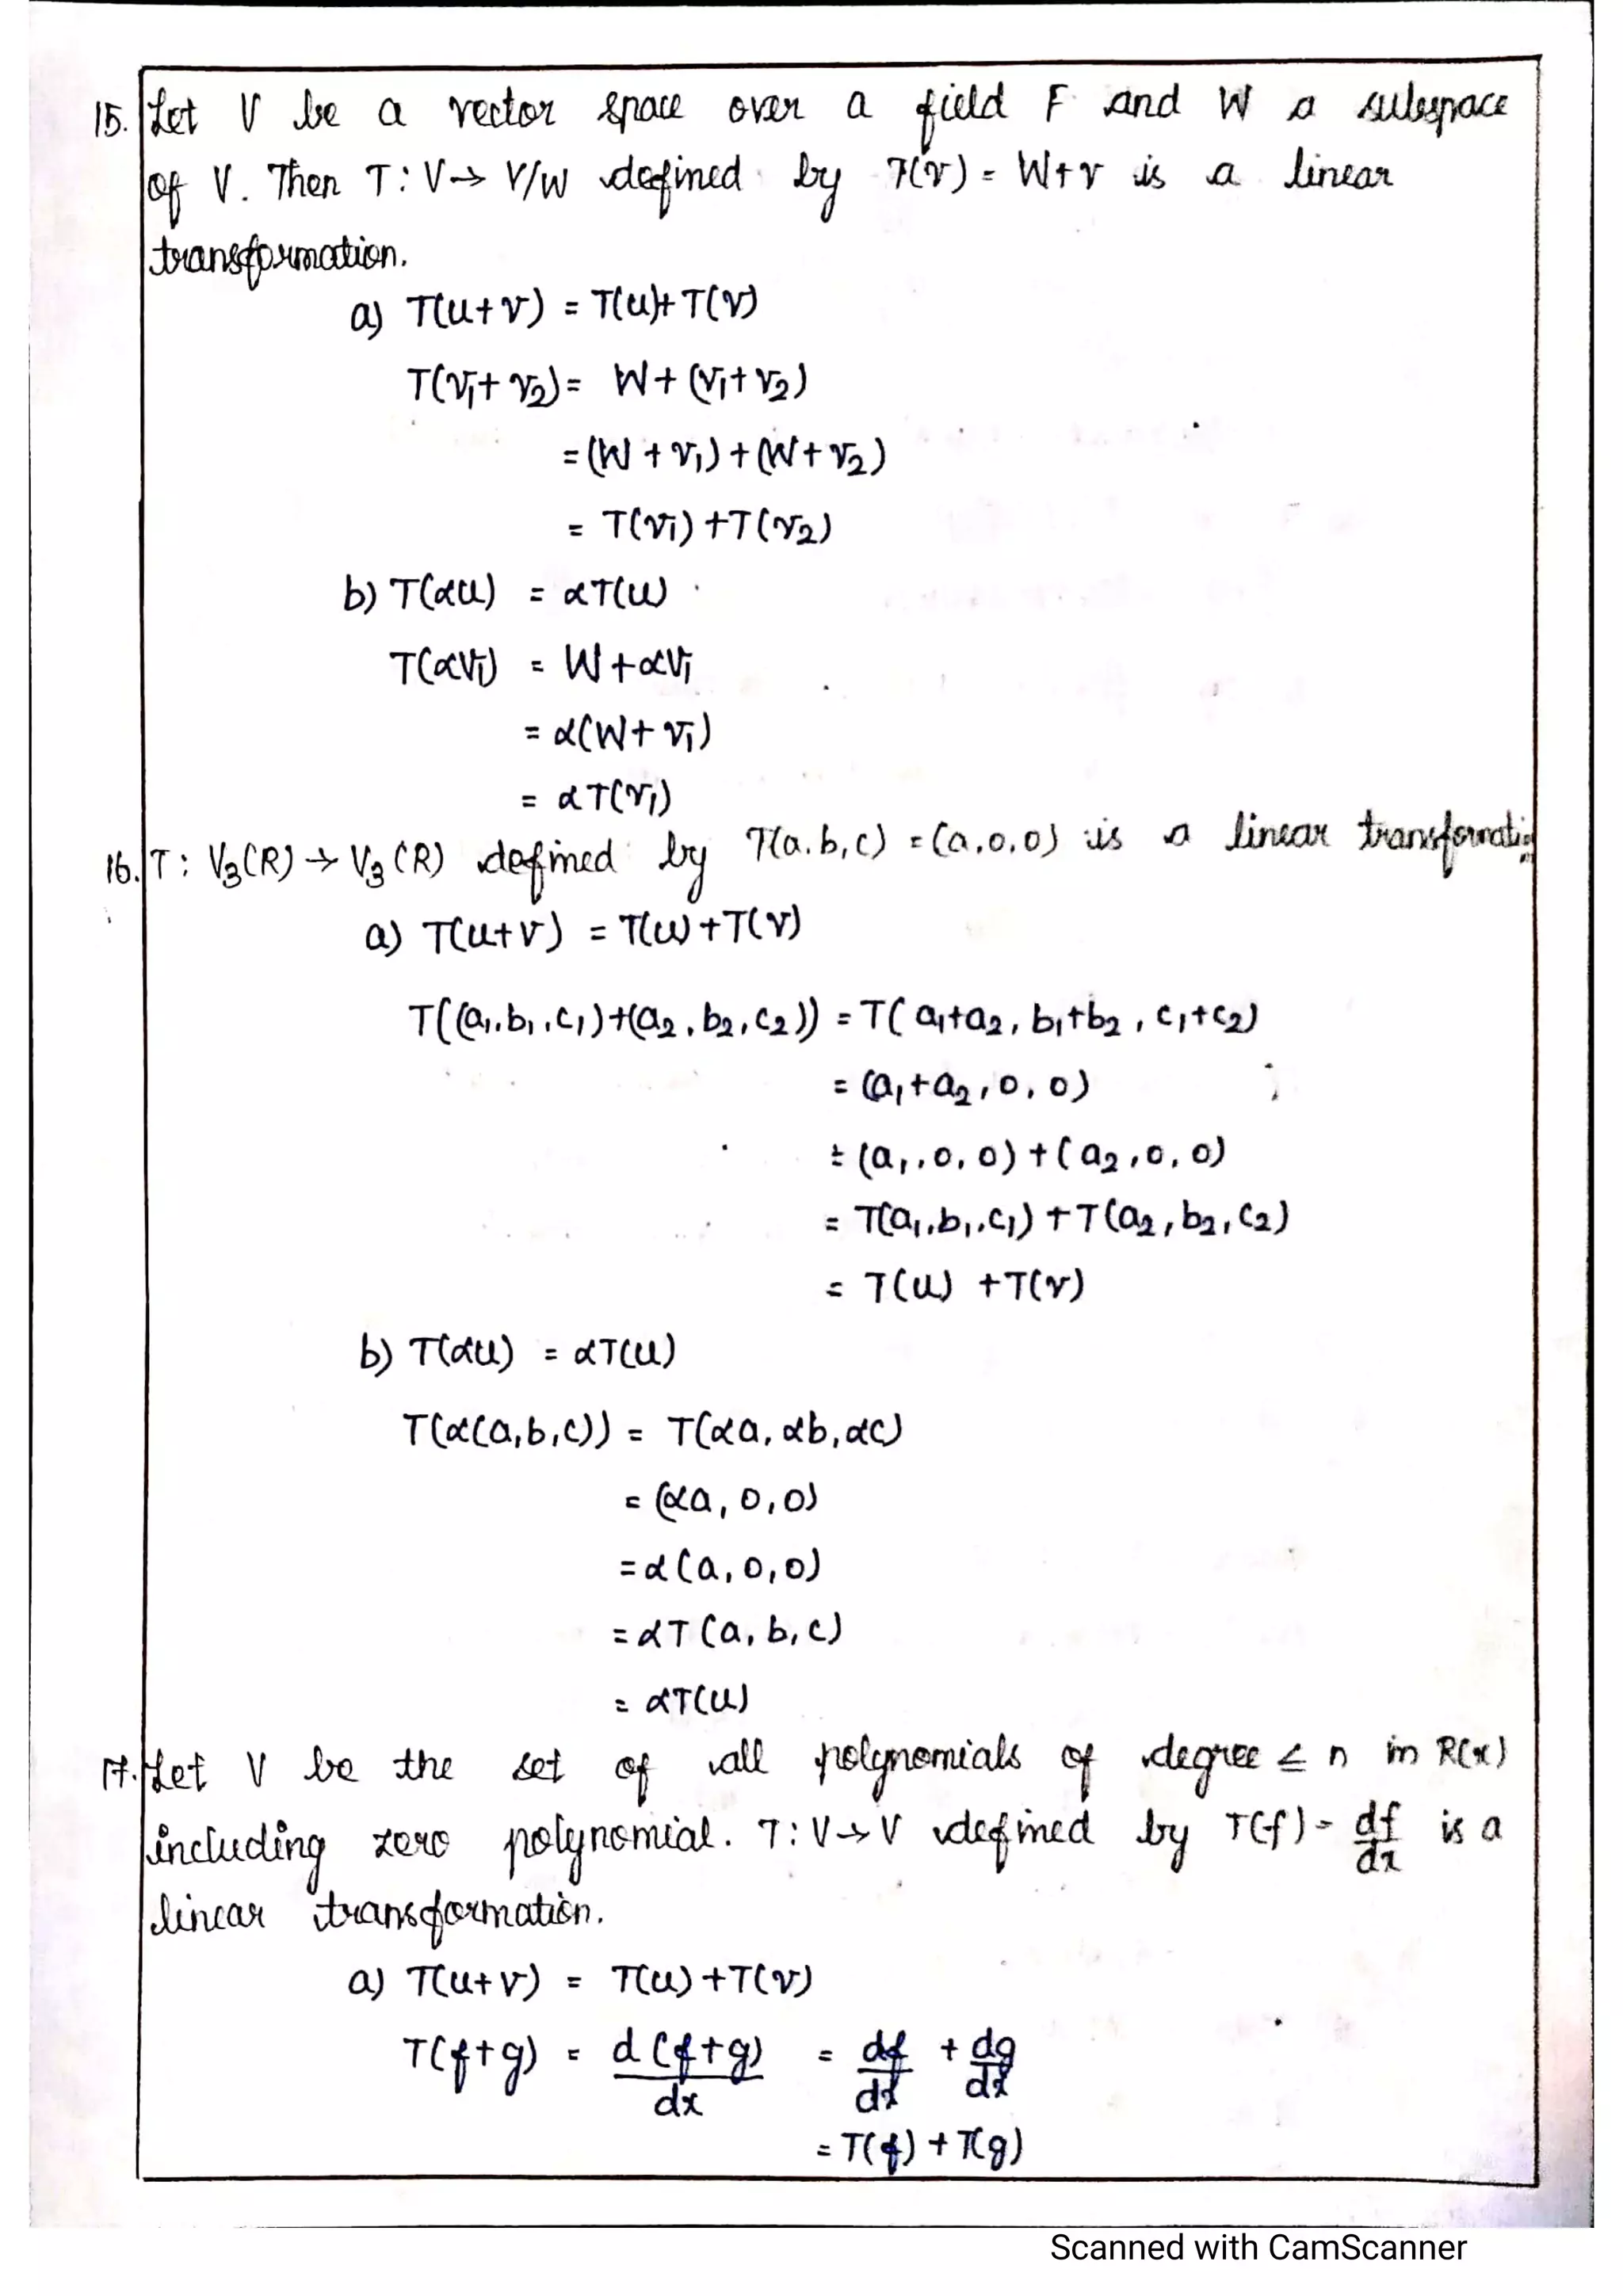 15. Let V be a vector space over a field F and W a subspace
of V. Then T : V→ V/W defined by T(v) = W+v is a linear
transformation.
a) T(u+v) = T(u)+T(v)
T(v₁+v₂) = W+(v₁+v₂)
=(W+v₁)+(W+v₂)
= T(v₁)+T(v₂)
b) T(αu) = αT(u)
T(αv₁) = W+αv₁
= α(W+v₁)
= αT(v₁)
16. T : V₃(R)→V₃(R) defined by T(a,b,c) = (a,0,0) is a linear transformation
a) T(u+v) = T(u)+T(v)
T((a₁,b₁,c₁)+(a₂,b₂,c₂)) = T(a₁+a₂, b₁+b₂, c₁+c₂)
= (a₁+a₂,0,0)
= (a₁,0,0)+(a₂,0,0)
= T(a₁,b₁,c₁)+T(a₂,b₂,c₂)
= T(u)+T(v)
b) T(αu) = αT(u)
T(α(a,b,c)) = T(αa, αb, αc)
= (αa,0,0)
= α(a,0,0)
= αT(a,b,c)
= αT(u)
17. Let V be the set of all polynomials of degree ≤ n in R(x)
including zero polynomial. T : V→V defined by T(f) = df/dx is a
linear transformation.
a) T(u+v) = T(u)+T(v)
T(f+g) = d(f+g)/dx = df/dx + dg/dx
= T(f)+T(g)
Scanned with CamScanner